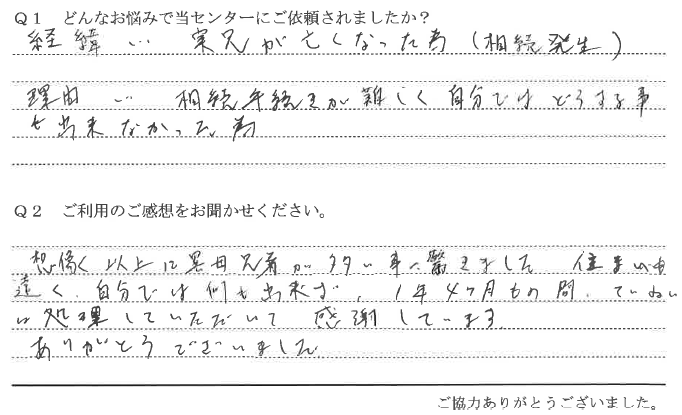 Ｑ１　どんなお悩みで当センターにご依頼されましたか？
経緯… 実兄が亡くなった為（相続発生）
理由… 相続手続きが難しく自分ではどうする事
も出来なかった為
Ｑ２　ご利用のご感想をお聞かせください。
想像以上に異母兄弟が多い事に驚きました 住まいも
遠く、自分では何も出来ず、1年4ヶ月もの間、ていねい
に処理していただいて 感謝しています
ありがとうございました
ご協力ありがとうございました。